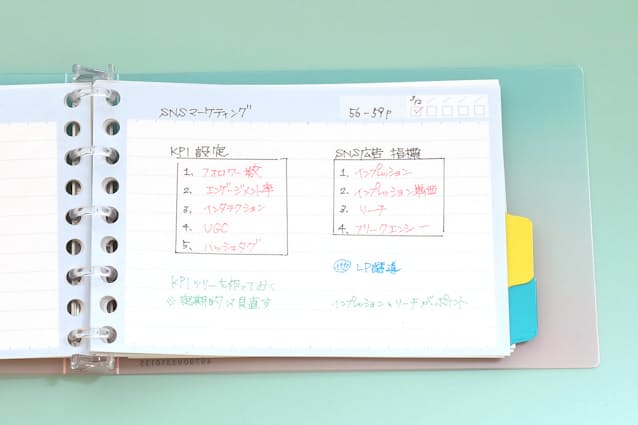 SNSマーケティング
56-59p
3/12
KPI 設定
1. フォロワー数
2. エンゲージメント率
3. インタラクション
4. UGC
5. ハッシュタグ
KPIツリーを作っておく
※定期的に見直す
SNS広告 指標
1. インプレッション
2. インプレッション単価
3. リーチ
4. フリークエンシー
LP誘導
インプレッションとリーチがポイント